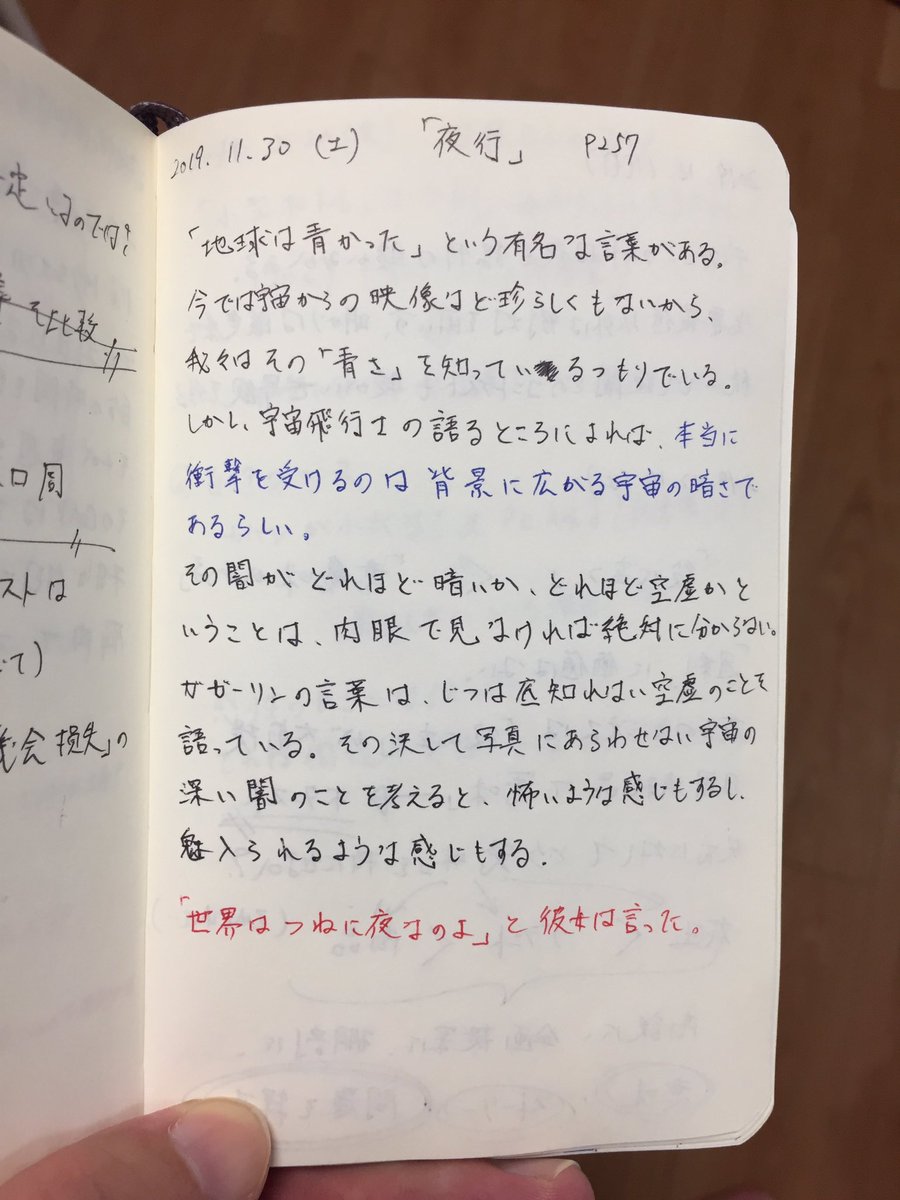 2019. 11. 30 (土) 「夜行」 P257
「地球は青かった」という有名な言葉がある。
今では宇宙からの映像など珍らしくもないから、
我々はその「青さ」を知っているつもりでいる。
しかし、宇宙飛行士の語るところによれば、本当に
衝撃を受けるのは背景に広がる宇宙の暗さで
あるらしい。
その闇がどれほど暗いか、どれほど空虚かと
いうことは、肉眼で見なければ絶対に分からない。
ガガーリンの言葉は、じつは底知れない空虚のことを
語っている。その決して写真にあらわせない宇宙の
深い闇のことを考えると、怖いような感じもするし、
魅入られるような感じもする。
「世界はつねに夜なのよ」と彼女は言った。
定
のでは?
比較
口周
ストは
て)
機会損失」の